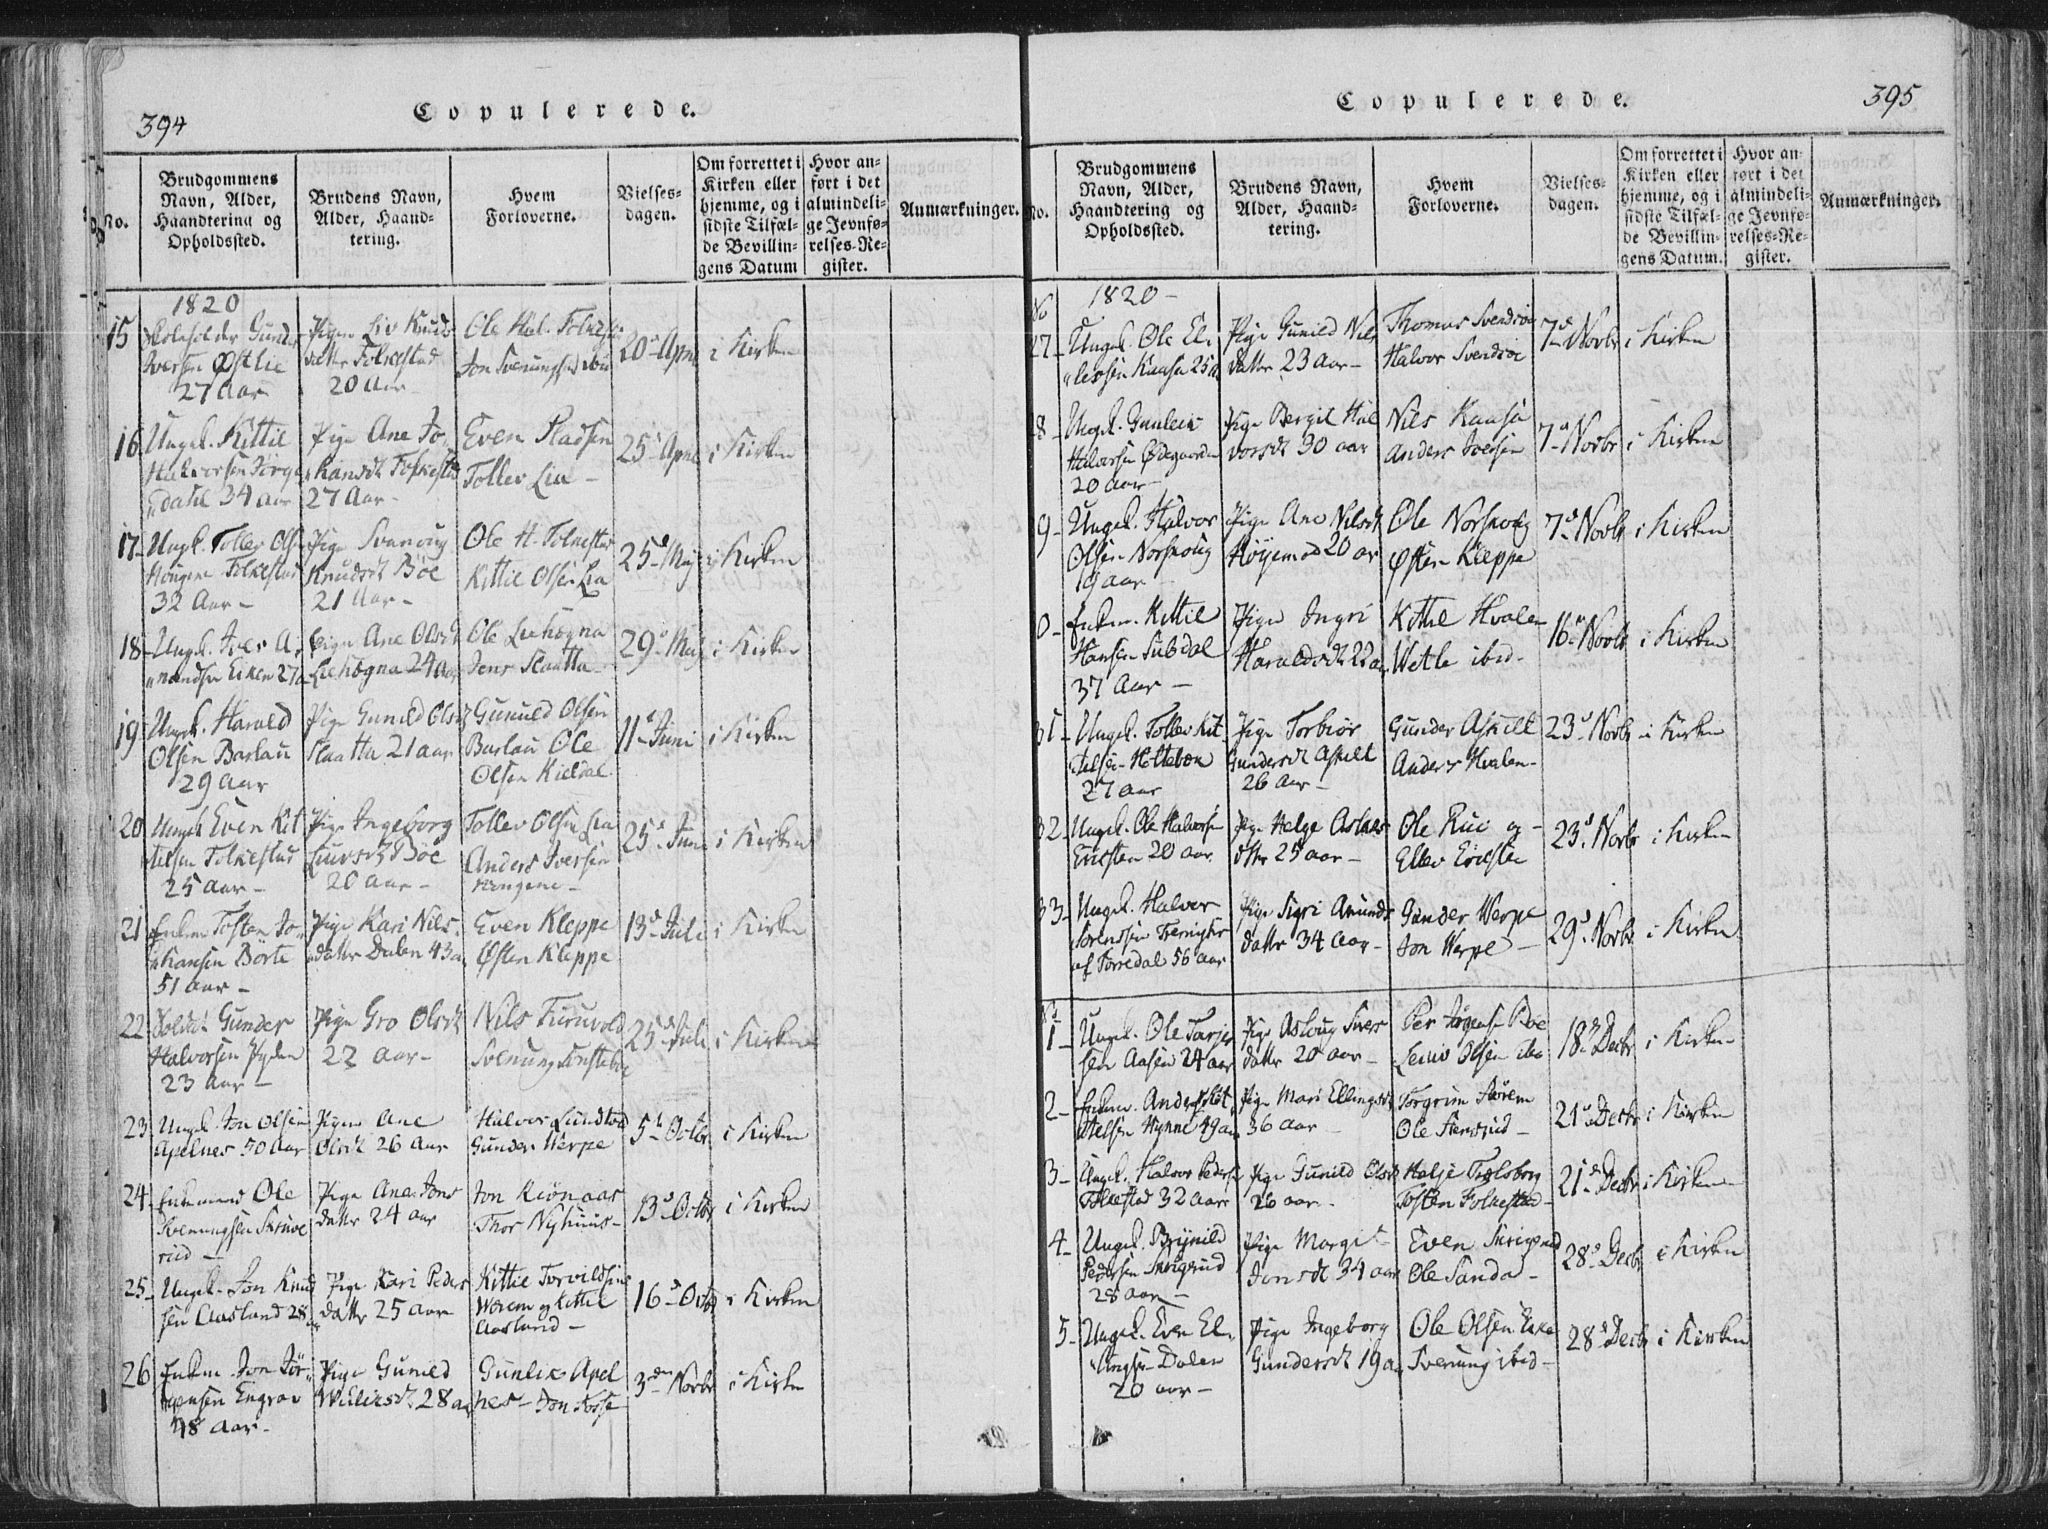 394
Copulerede.
No.
Brudgommens Navn, Alder, Haandtering og Opholdssted.
Brudens Navn, Alder, Haandtering.
Hvem Forloverne.
Vielsesdagen.
Om forrettet i Kirken eller hjemme, og i sidste Tilfælde Bevillingens Datum
Hvor anført i det almindelige Jevnførelses-Register.
Anmærkninger.
1820
15 Gunder Iversen Østlie 27 Aar
Pigen Liv Knudsdatter Folkestad 20 Aar
Ole Hal. Folkestad
Jon Svenungsen ibid
20 April i Kirken
16 Ungk. Kittil Halvorsen Jörgedahl 34 aar
Pige Ane Johansdt Folkestad 27 Aar -
Even Pladsen
Tollev Lia -
25 April i Kirken
17 Ungk. Tollev Olsen Haugene Folkestad 32 Aar -
Pige Svanoug Knudsdt Böe 21 Aar -
Ole H. Folkestad
Kittil Olsen Lia
25 Maj i Kirken
18 Ungk. Iver Amundsen Eiken 27 a
Pige Ane Olsdt Liehøgna 24 Aar
Ole Liehøgna
Jens Slaatta -
29 Maj i Kirken
19 Ungk. Harald Olsen Barlau 29 aar
Pige Gunild Olsdt Slaatta 21 aar
Gunuld Olsen
Barlau Ole
Olsen Kieldal
11 Juni i Kirken
20 Ungk Even Kittilsen Folkestad 25 aar -
Pige Ingeborg Liversdt Böe 20 aar -
Tollev Olsen Lia
Anders Iversen
Haugene -
25 Juni i Kirken
21 Enkem Tosten Johansen Börte 51 aar -
Pige Kari Nilsdatter Dalen 43 a
Even Kleppe
Østen Kleppe
13 Juli i Kirken
22 Soldat Gunder Halvorsen 23 aar -
Pige Gro Olsdt 22 aar -
Nils Furuvold
Svenung
25 Juli i Kirken
23 Ungk Jon Olsen Apelnes 30 aar
Pigen Ane Olsdt 26 aar
Halvor Lundtvod
Gunder Werpe
5 Octbr i Kirken
24 Enkemand Ole
Pige Ane Jonsdatter 24 aar
Jon Kiönaas
Thor Nyhuus -
13 Octbr i Kirken
25 Ungk. Jon Knudsen Aasland 28 aar
Pige Kari Pedersdatter 25 aar
Kittil Torvildsen
Worem og Kittil
Aasland -
16 Octbr i Kirken
26 Enkem Jon Jörgensen Engrav 48 aar -
Pige Gunild 28 aar
Gunleik Apelnes - Jon Fosse
3 Novbr i Kirken
395
Copulerede.
No.
Brudgommens Navn, Alder, Haandtering og Opholdssted.
Brudens Navn, Alder, Haandtering.
Hvem Forloverne.
Vielsesdagen.
Om forrettet i Kirken eller hjemme, og i sidste Tilfælde Bevillingens Datum.
Hvor anført i det almindelige Jevnførelses-Register.
Anmærkninger.
No 1820 -
27 - Ungk. Ole Ellefsen Kaasa 25 a
Pige Gunild Nilsdatter 23 aar -
Thomas Svendsöe
Halvor Svendsöe
7 Novbr i Kirken
8 - Ungk. Gunleik Halvorsen Ødegaarden 20 aar -
Pige Bergit Halvorsdt 30 aar
Nils Kaasa
Anders Iversen
7 Novbr i Kirken
9 - Ungk. Halvor Olsen Norskoug 19 aar -
Pige Ane Nilsdt Höyemod 20 ar
Ole Norskoug
Østen Kleppe
7 Novbr i Kirken
0 - Enkem. Kittil Hansen Suvdal 37 Aar -
Pige Ingri Haraldsdt 22 aar
Kittil Hvalen
Wetle ibid -
16 Novbr i Kirken
31 - Ungk. Tollev Kittilsen Holtebou 27 aar
Pige Torbiör Gundersdt Askilt 26 aar -
Gunder Askilt
Anders Hvalen -
23 Novbr i Kirken
32 - Ungk. Ole Halvorsen Ericsten 20 aar
Pige Helge Aslaksdatter 25 aar -
Ole Rui og -
Ellev Ericsten
23 Novbr i Kirken
33 - Ungk. Halvor Sörensen af Torredal 56 aar
Pige Sigri Amundsdatter 34 aar -
Gunder Werpe
Jon Werpe -
29 Novbr i Kirken
No
1 - Ungk. Ole Tarjesen Aasen 24 aar
Pige Asloug Iversdatter 20 aar -
Per Jörgensen Böe
Olsen ibid
18 Decbr i Kirken -
2 - Enkem. Anders Kittelsen Hynne 49 aar
Pige Mari Ellingsdt 36 aar -
Torgrim
Ole Stensrud -
21 Decbr i Kirken
3 - Ungk. Halvor Pedersen Folkestad 32 aar
Pige Gunild Olsdt 26 aar -
Halje Trælsborg
Tosten Folkestad -
21 Decbr i Kirken
4 - Ungk. Brynild Pedersen Skrigrud 28 aar -
Pige Margit Jonsdt 34 aar
Even Skrigrud
Ole Sanda -
28 Decbr i Kirken
5 - Ungk. Even Ellingsen Dalen 20 aar -
Pige Ingeborg Gundersdt 19 a
Ole Olsen
Svenung ibid -
28 Decbr i Kirken